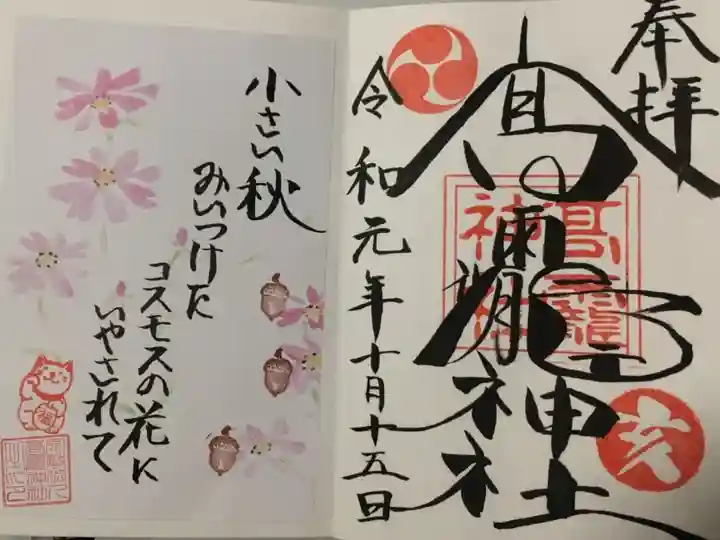 奉拝
高靇神社
令和元年十月十五日
亥
小さい秋
みいつけた
コスモスの花に
いやされて
福